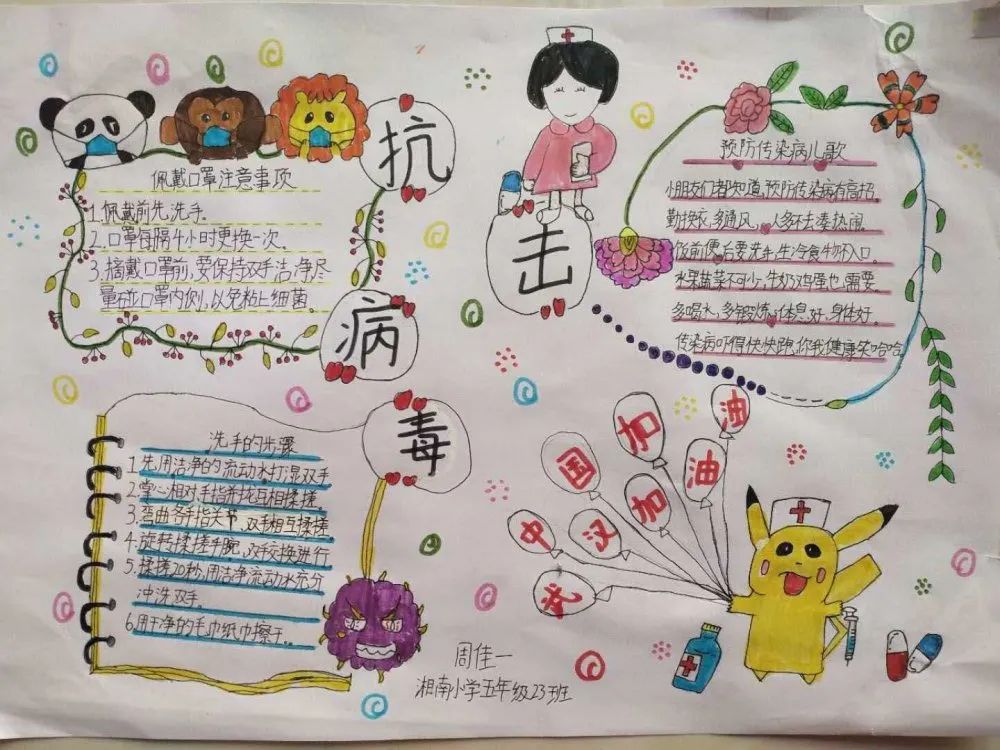 抗击病毒
佩戴口罩注意事项
1.佩戴前先洗手。
2.口罩每隔4小时更换一次。
3.摘戴口罩前,要保持双手洁净,尽
量碰口罩内侧,以免粘上细菌。
预防传染病儿歌
小朋友们都知道,预防传染病有高招。
勤换衣,多通风,人多不去凑热闹。
饭前便后要洗手,生冷食物不入口。
水果蔬菜不可少,牛奶鸡蛋也需要
多喝水,多锻炼,休息好,身体好。
传染病吓得快快跑,你我健康笑哈哈。
洗手的步骤
1.先用洁净的流动水打湿双手
2.掌心相对,手指并拢互相揉搓。
3.弯曲各手指关节,双手相互揉搓。
4.旋转揉搓手腕,双手交换进行
5.揉搓20秒,用洁净流动水充分
冲洗双手。
6.用干净的毛巾纸巾擦干。
中国加油
武汉加油
周佳一
湘南小学五年级23班